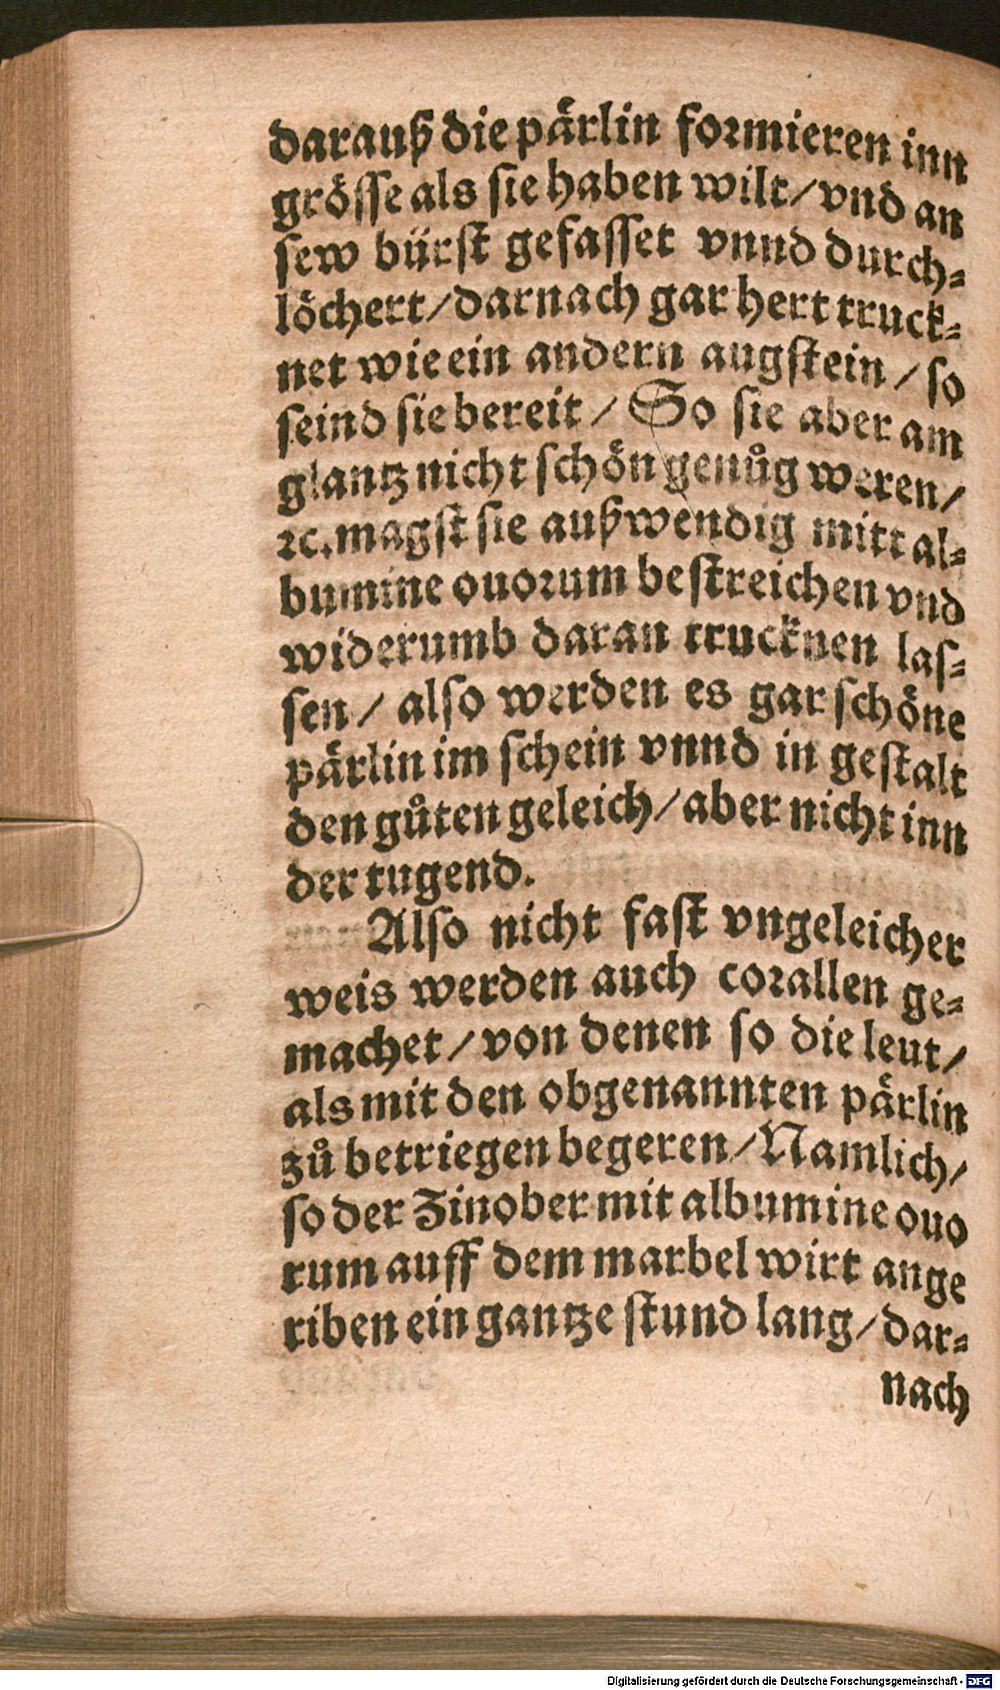 darauß die pärlin formieren inn
grösse als sie haben wilt/vnd an
sew bürst gefasset vnnd durch-
löchert/darnach gar hert truck-
net wie ein andern augstein/so
seind sie bereit/So sie aber am
glantz nicht schön genůg weren/
ꝛc.magst sie außwendig mitt al-
bumine ouorum bestreichen vnd
widerumb daran trucknen las-
sen/also werden es gar schöne
pärlin im schein vnnd in gestalt
den gůten geleich/aber nicht inn
der tugend.
Also nicht fast vngeleicher
weis werden auch corallen ge-
machet/von denen so die leut/
als mit den obgenannten pärlin
zů betriegen begeren/Namlich/
so der Zinober mit albumine ouo
rum auff dem marbel wirt ange
riben ein gantze stund lang/dar-
nach
Digitalisierung gefördert durch die Deutsche Forschungsgemeinschaft - DFG